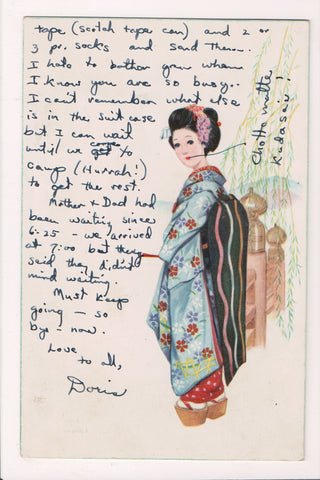 tape (scotch tape can) and 2 or
3 pr. socks and send them.
I hate to bother you when
I know you are so busy.
I can't remember what else
is in the suit case
but I can wait
until we get to
canyon
camp (Hurrah!)
to get the rest.
Mother & Dad had
been waiting since
6:25 - we arrived
at 7:00 but they
said they didn't
mind waiting.
Must keep
going - so
bye - now.
Love
to all,
Doris
Chotto matte
Kudasai!